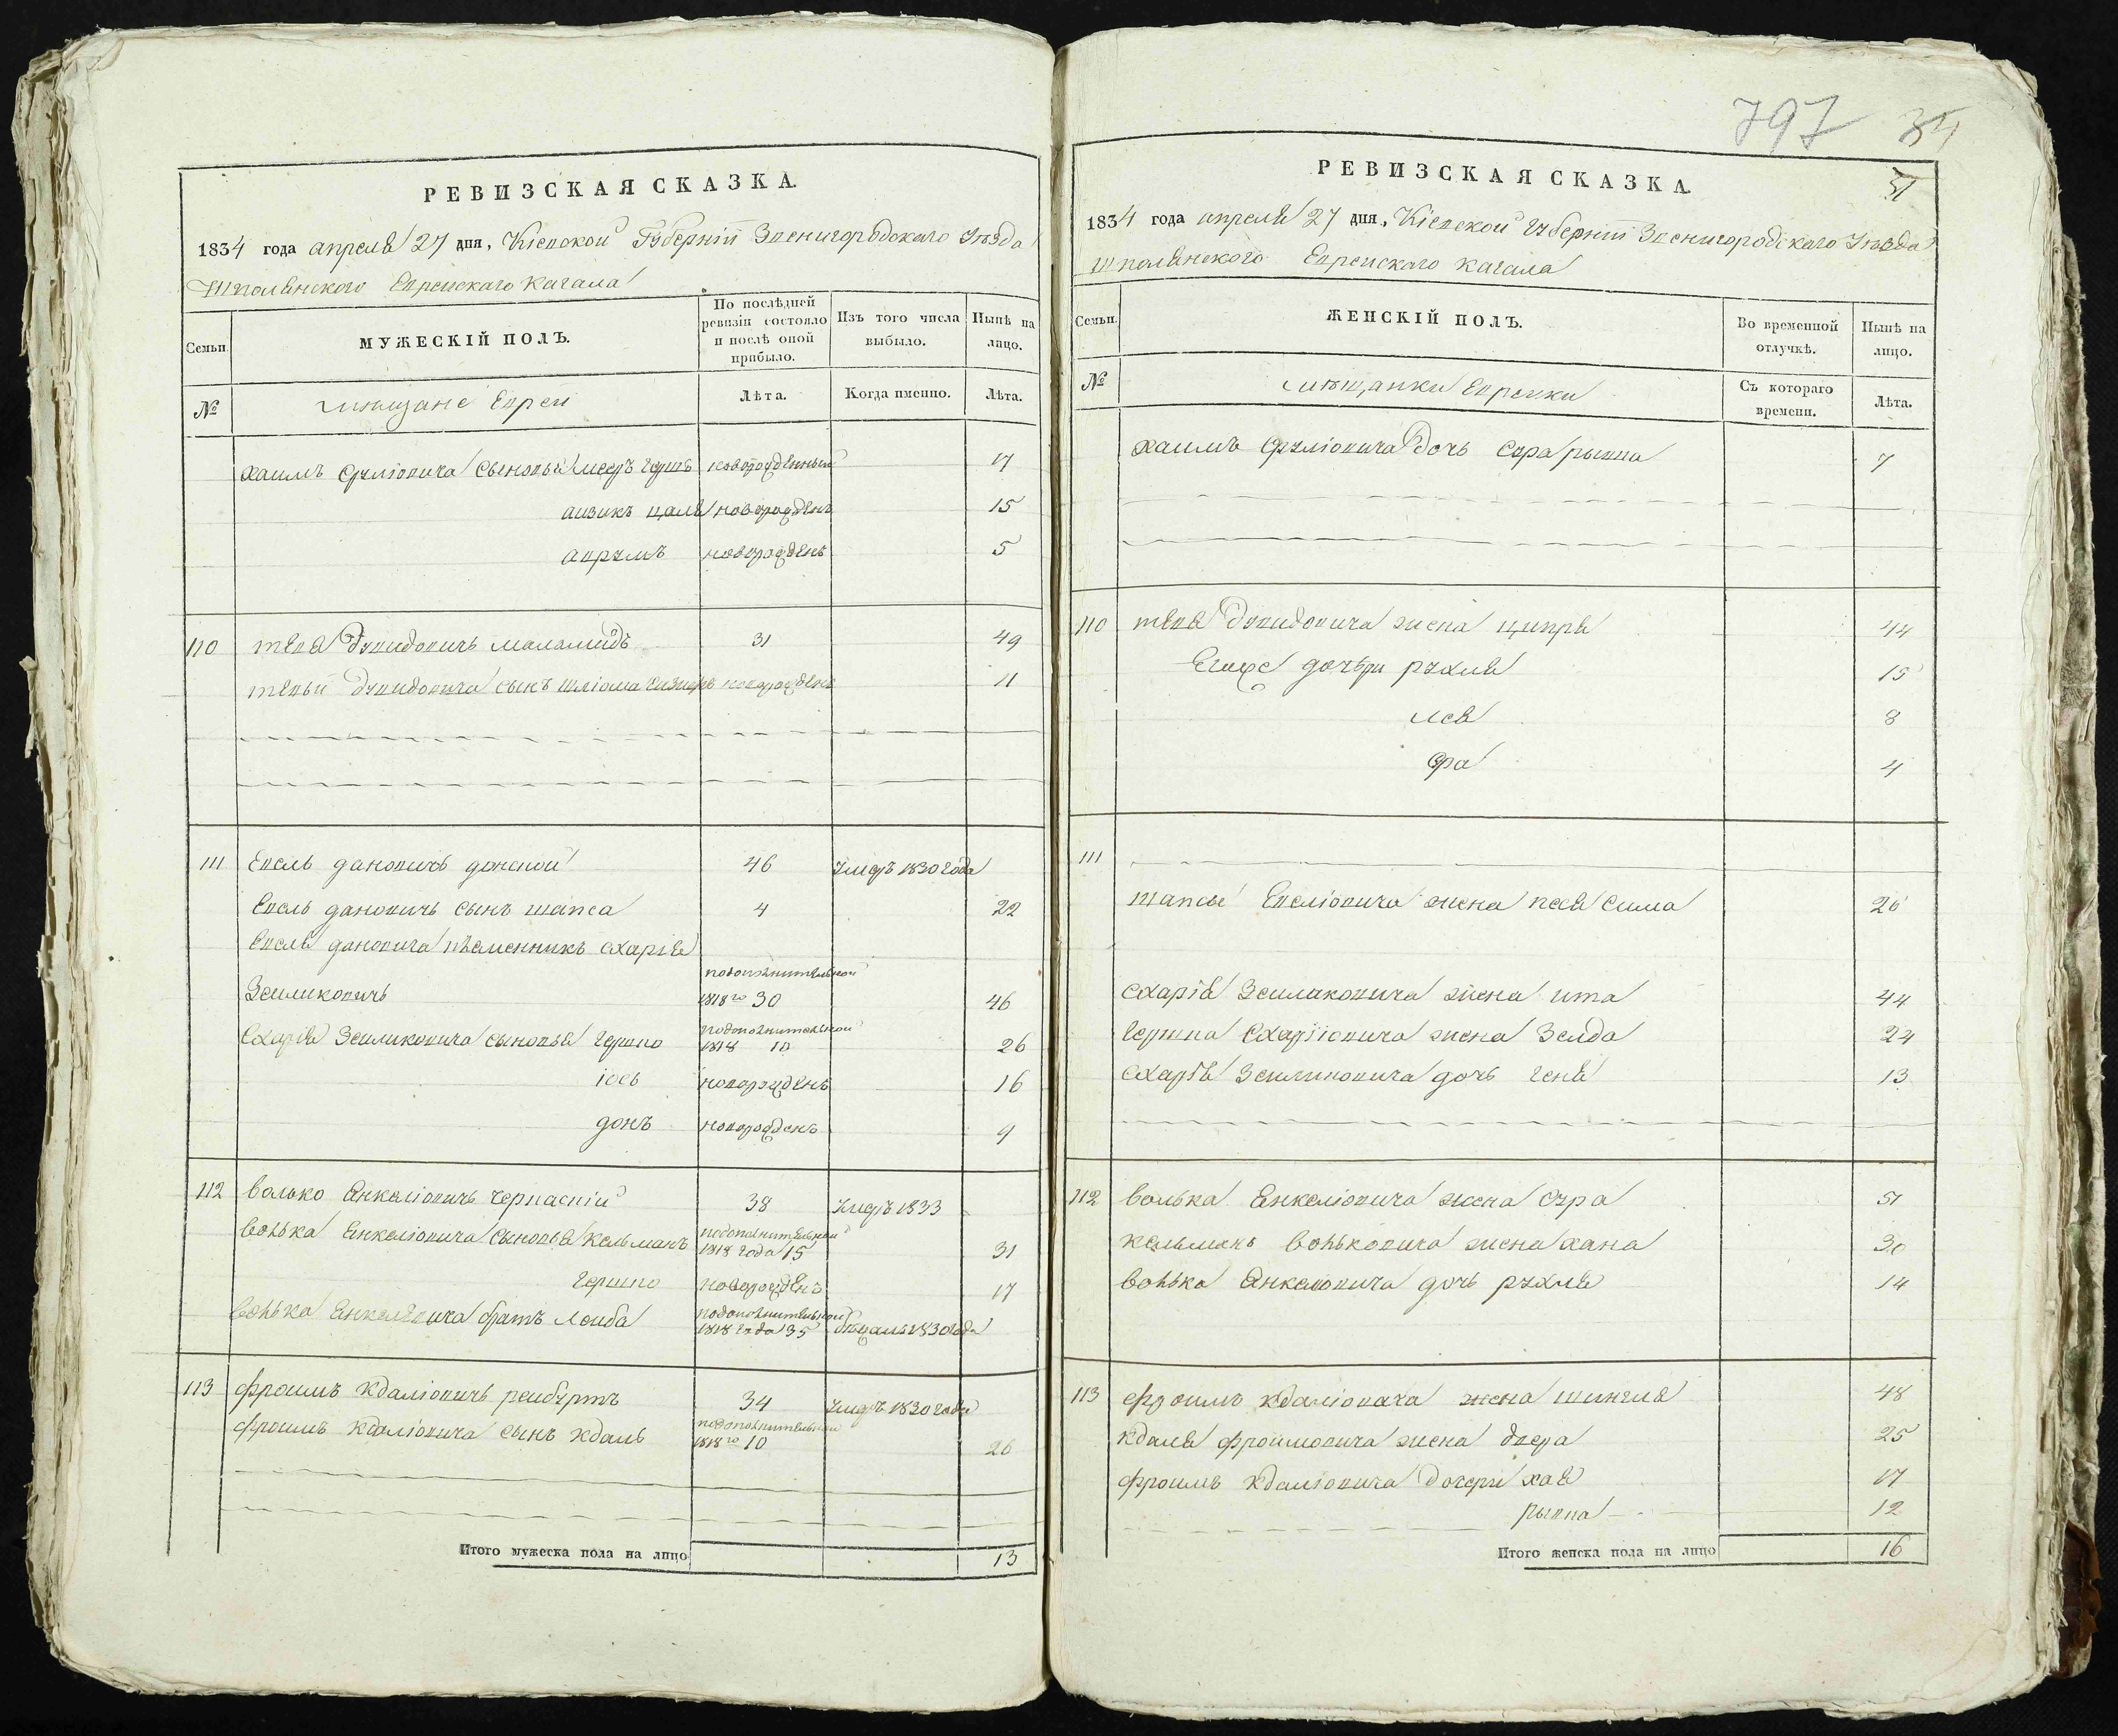 797 34
51
РЕВИЗСКАЯ СКАЗКА.
1834 года апреля 27 дня, Кіевской Губерніи Звенигородскаго Уѣзда
Шполянского Еврейскаго Кагала
Семьи.
МУЖЕСКІЙ ПОЛЪ.
По послѣдней ревизіи состояло и послѣ оной прибыло.
Изъ того числа выбыло.
Нынѣ на лицо.
№
мѣщане Евреи
Лѣта.
Когда именно.
Лѣта.
хаимъ Срулiовича Сыновья мееръ герш новорожденный 17
аизикъ цаля новорожденъ 15
аврумъ новорожденъ 5
110 тевя Дувидовичъ маламидъ 31 49
тевьи Дувидовича сынъ шліома новорожденъ 11
111 Евель дановичъ донской 46 умеръ 1830 года
Евель дановичь сынъ шапса 4 22
Евеля дановича пѣлменникъ схарія
Зеиликовичъ подополнительной 1818го 30 46
Схарія Зеиликовича сыновья гершко подополнительной 1818 10 26
іось новорожденъ 16
донъ новорожденъ 9
112 Волько Янкеліовичъ черкаскіи 38 умеръ 1833
Волька Янкеліовича Сыновья Кельманъ подополнительной 1818 года 15 31
гершко новорожденъ 17
Волька Янкеліовича братъ Лейба подополнительной 1818 года 35 бѣжалъ 1830 года
113 фроимъ Кдаліовичъ реибуртъ 34 умеръ 1830 года
фроимъ Кдаліовича сынъ Кдаль подополнительной 1818го 10 26
Итого мужеска пола на лицо 13
РЕВИЗСКАЯ СКАЗКА.
1834 года апреля 27 дня, Кіевской Губерніи Звенигородскаго Уѣзда
Шполянского Еврейскаго Кагала
Семьи.
ЖЕНСКІЙ ПОЛЪ.
Во временной отлучкѣ.
Нынѣ на лицо.
№
мѣщанки Еврейки
Съ котораго времени.
Лѣта.
хаимъ Срулiовича дочь Сура рывка 7
110 тевя Дувидовича жена ципра 44
Егоже дочери рухля 15
лея 8
Сура 4
111
шапсы Евеліовича жена песя сима 20
схарія Зеиликовича жена ита 44
гершка Схаріовича жена Зелда 24
схарія Зеиликовича дочь геня 13
112 Волька Янкеліовича жена Сура 51
кельманъ Вольковича жена хана 30
Волька Янкеліовича дочь рухля 14
113 фроимъ Кдаліовича жена 48
Кдаля фроимовича жена двера 25
фроимъ Кдаліовича дочери хая 17
рывка 12
Итого женска пола на лицо 16